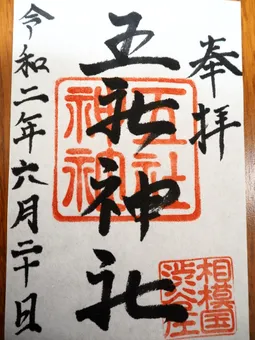 奉拝
五社神社
令和二年六月二十日
五社神社
相模国
渋谷庄